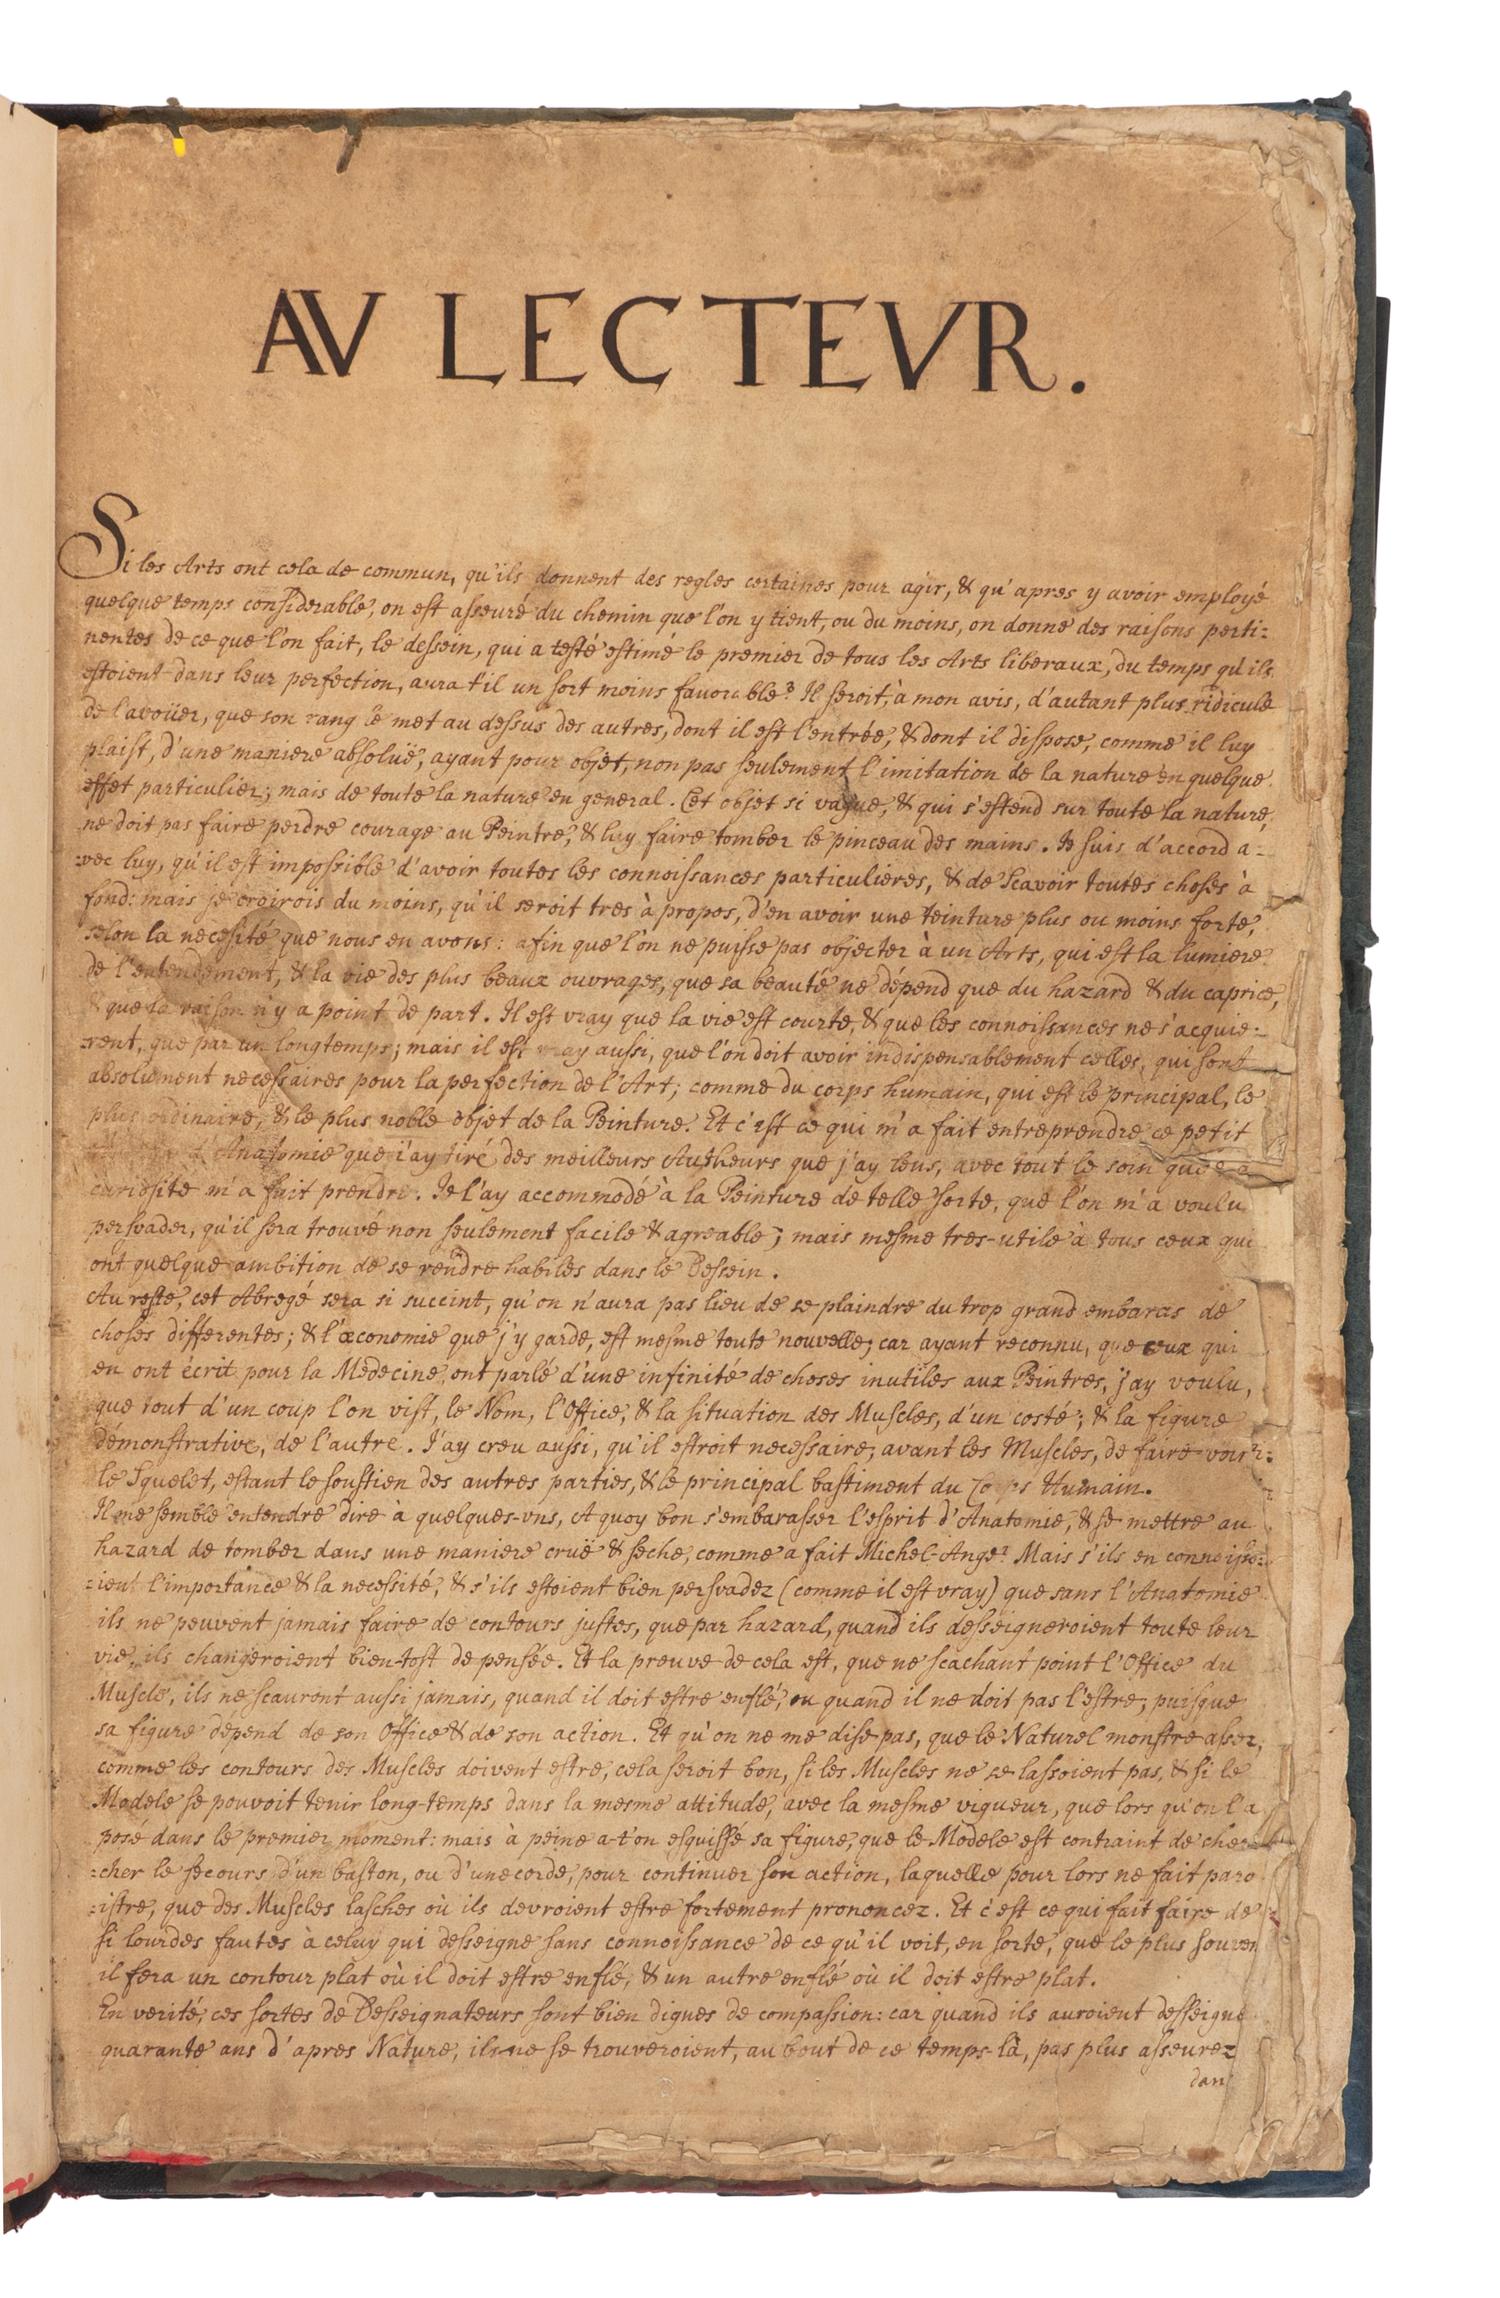 AV LECTEVR.
Si les Arts ont cela de commun, qu'ils donnent des regles certaines pour agir, & qu'apres y avoir employé
quelque temps considerable, on est asseuré du chemin que l'on y tient, ou du moins, on donne des raisons perti=
nentes de ce que l'on fait, le dessein, qui a testé estimé le premier de tous les Arts liberaux, du temps qu'ils
estoient dans leur perfection, aura t'il un sort moins favorable? Il seroit, à mon avis, d'autant plus ridicule
de l'avoüer, que son rang le met au dessus des autres, dont il est l'entrée, & dont il dispose, comme il luy
plaist, d'une maniere absoluë, ayant pour objet, non pas seulement l'imitation de la nature en quelque
effet particulier; mais de toute la nature en general. Cet objet si vague, & qui s'estend sur toute la nature,
ne doit pas faire perdre courage au Peintre, & luy faire tomber le pinceau des mains. Je suis d'accord a=
=vec luy, qu'il est impossible d'avoir toutes les connoissances particulieres, & de scavoir toutes choses à
fond: mais je croirois du moins, qu'il seroit tres à propos, d'en avoir une teinture plus ou moins forte,
selon la necessité que nous en avons: afin que l'on ne puisse pas objecter à un Arts, qui est la lumiere
de l'entendement, & la vie des plus beaux ouvrages, que sa beauté ne dépend que du hazard & du caprice,
& que la raison n'y a point de part. Il est vray que la vie est courte, & que les connoissances ne s'acquie=
=rent, que par un longtemps; mais il est vray aussi, que l'on doit avoir indispensablement celles, qui sont
absolument necessaires pour la perfection de l'Art; comme du corps humain, qui est le principal, le
plus ordinaire, & le plus noble objet de la Peinture. Et c'est ce qui m'a fait entreprendre ce petit
d'Anatomie que j'ay tiré des meilleurs Autheurs que j'ay leus, avec tout le soin que
curiosité m'a fait prendre. Je l'ay accommodé à la Peinture de telle sorte, que l'on m'a voulu
persvader, qu'il sera trouvé non seulement facile & agreable; mais mesme tres-utile à tous ceux qui
ont quelque ambition de se rendre habiles dans le Dessein.
Au reste, cet Abregé sera si succint, qu'on n'aura pas lieu de se plaindre du trop grand embaras de
choses differentes; & l'œconomie que j'y garde, est mesme toute nouvelle; car ayant reconnu, que ceux qui
en ont écrit pour la Medecine, ont parlé d'une infinité de choses inutiles aux Peintres, j'ay voulu,
que tout d'un coup l'on vist, le Nom, l'Office, & la situation des Muscles, d'un costé; & la figure
démonstrative, de l'autre. J'ay creu aussi, qu'il estroit necessaire, avant les Muscles, de faire voir
le Squelet, estant le soustien des autres parties, & le principal bastiment du Corps Humain.
Il me semble entendre dire à quelques-vns, A quoy bon s'embarasser l'esprit d'Anatomie, & se mettre au
hazard de tomber dans une maniere cruë & seche, comme a fait Michel-Ange? Mais s'ils en connoisso=
=ient l'importance & la necessité, & s'ils estoient bien persvadez (comme il est vray) que sans l'Anatomie
ils ne peuvent jamais faire de contours justes, que par hazard, quand ils desseigneroient toute leur
vie, ils changeroient bien-tost de pensée. Et la preuve de cela est, que ne scachant point l'Office du
Muscle, ils ne scauront aussi jamais, quand il doit estre enflé, ou quand il ne doit pas l'estre; puisque
sa figure dépend de son Office & de son action. Et qu'on ne me dise pas, que le Naturel monstre assez,
comme les contours des Muscles doivent estre, cela seroit bon, si les Muscles ne se lassoient pas, & si le
Modele se pouvoit tenir long-temps dans la mesme attitude, avec la mesme vigueur, que lors qu'on l'a
posé dans le premier moment: mais à peine a-t'on esquissé sa figure, que le Modele est contraint de cher
=cher le secours d'un baston, ou d'une corde, pour continuer son action, laquelle pour lors ne fait paro
=istre, que des Muscles lasches où ils devroient estre fortement prononcez. Et c'est ce qui fait faire de
si lourdes fautes à celuy qui desseigne sans connoissance de ce qu'il voit, en sorte, que le plus souven
il fera un contour plat où il doit estre enflé, & un autre enflé où il doit estre plat.
En verité, ces sortes de Desseignateurs sont bien dignes de compassion: car quand ils auroient desseigné
quarante ans d'apres Nature, ils ne se trouveroient, au bout de ce temps-là, pas plus asseurez
dan